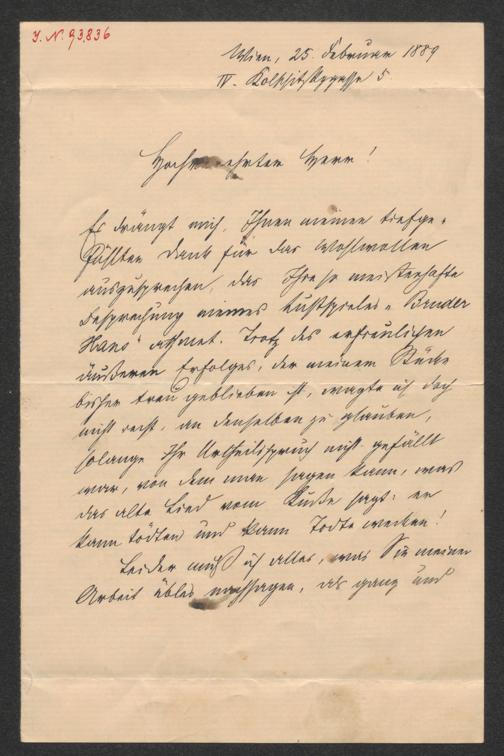 J. N. 93.836
Wien, 25. Februar 1889
IV. Kolschitzkygasse 5
Hochverehrter Herr!
Es drängt mich, Ihnen meinen tiefge-
fühlten Dank für das Wohlwollen
auszusprechen, das Ihre so meisterhafte
Besprechung meines Lustspieles „Bruder
Hans“ athmet. Trotz des erfreulichen
äußeren Erfolges, der meinem Stücke
bisher treu geblieben ist, wagte ich doch
nicht recht, an denselben zu glauben,
solange Ihr Urtheilsspruch nicht gefällt
war, von dem man sagen kann, was
das alte Lied vom Kusse sagt: er
kann tödten und kann Todte wecken!
Leider muß ich alles, was Sie meiner
Arbeit übles nachsagen, als ganz und